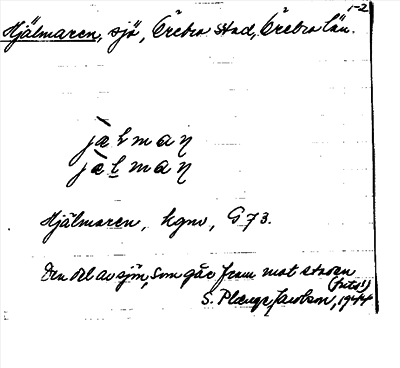 1-2
Hjälmaren, sjö, Örebro stad, Örebro län.
jàlmaŋ
jàlmaŋ
Hjälmaren, hgnv, G 73.
Den del av sjön, som går fram mot staden
(foto!)
S. Jacobson, 1944